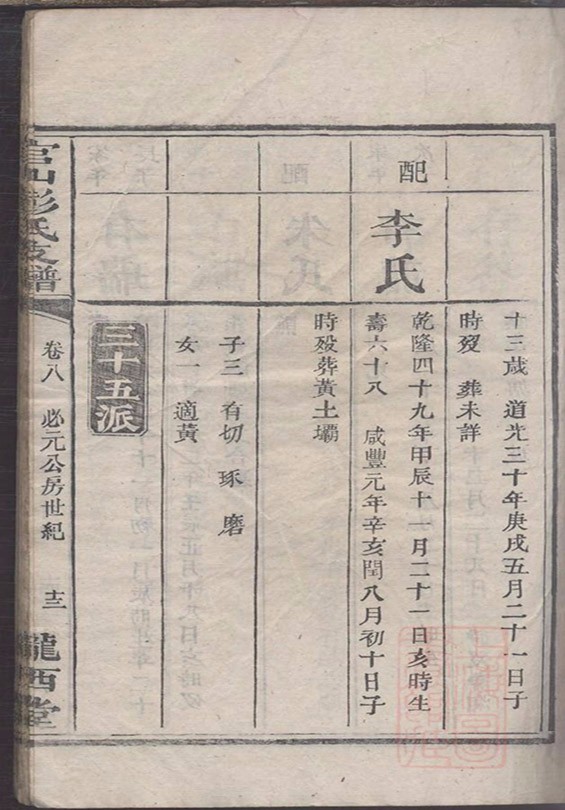 十三歳 道光三十年庚戌五月二十一日子
時歿 葬未詳
配 李氏
乾隆四十九年甲辰十一月二十一日亥時生
壽六十八 咸豐元年辛亥閏八月初十日子
時歿葬黃土壩
子三 有切 琢 磨
女一 適黃
三十五派
官山彭氏支譜
卷八 必元公房世紀
十二
隴西堂